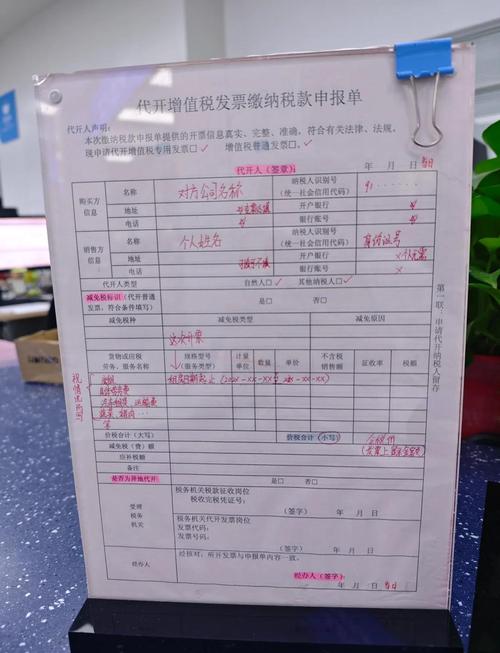 代开增值税发票缴纳税款申报单
代开人声明:
本次缴纳税款申报单提供的开票信息真实、完整、准确,符合有关法律、法规。
现申请代开增值税专用发票□ ✓ 增值税普通发票□ ✓
代开人(签章) 年 月 日 当日
购买方信息 名称 对方公司名称 纳税人识别号(统一社会信用代码) 91······
地址 开户银行
电话 银行账号
销售方信息 名称 个人姓名 纳税人识别号(统一社会信用代码) 身份证号
地址 开户银行 ×个人无需
电话 银行账号 ×
代开人类型 自然人□ ✓ 其他纳税人□ ✓
减免税标识(代开普通发票,符合条件填写) 是□ 否□
减免税种 减免税类型 减免原因
这次开票
货物或应税劳务、服务名称 规格型号(服务类型) 计量单位 数量 单价 不含税销售额 征收率 税额
视情况而写
租赁日期起止
蔬菜、猪肉···
等
价税合计(大写) 价税合计(小写) 含税价
减免税(费)额
应补税额
备注
是否为异地代开 是□ 否□
受理税务机关 税务机关税款征收岗位
税收完税凭证号:
(签字) 年 月 日
税务机关代开发票岗位
发票代码:
发票号码:
(签字) 年 月 日
经办人 经核对,所开发票与申报单内容一致。
经办人(签字): 年 月 日 当日
第一联:申请代开纳税人留存